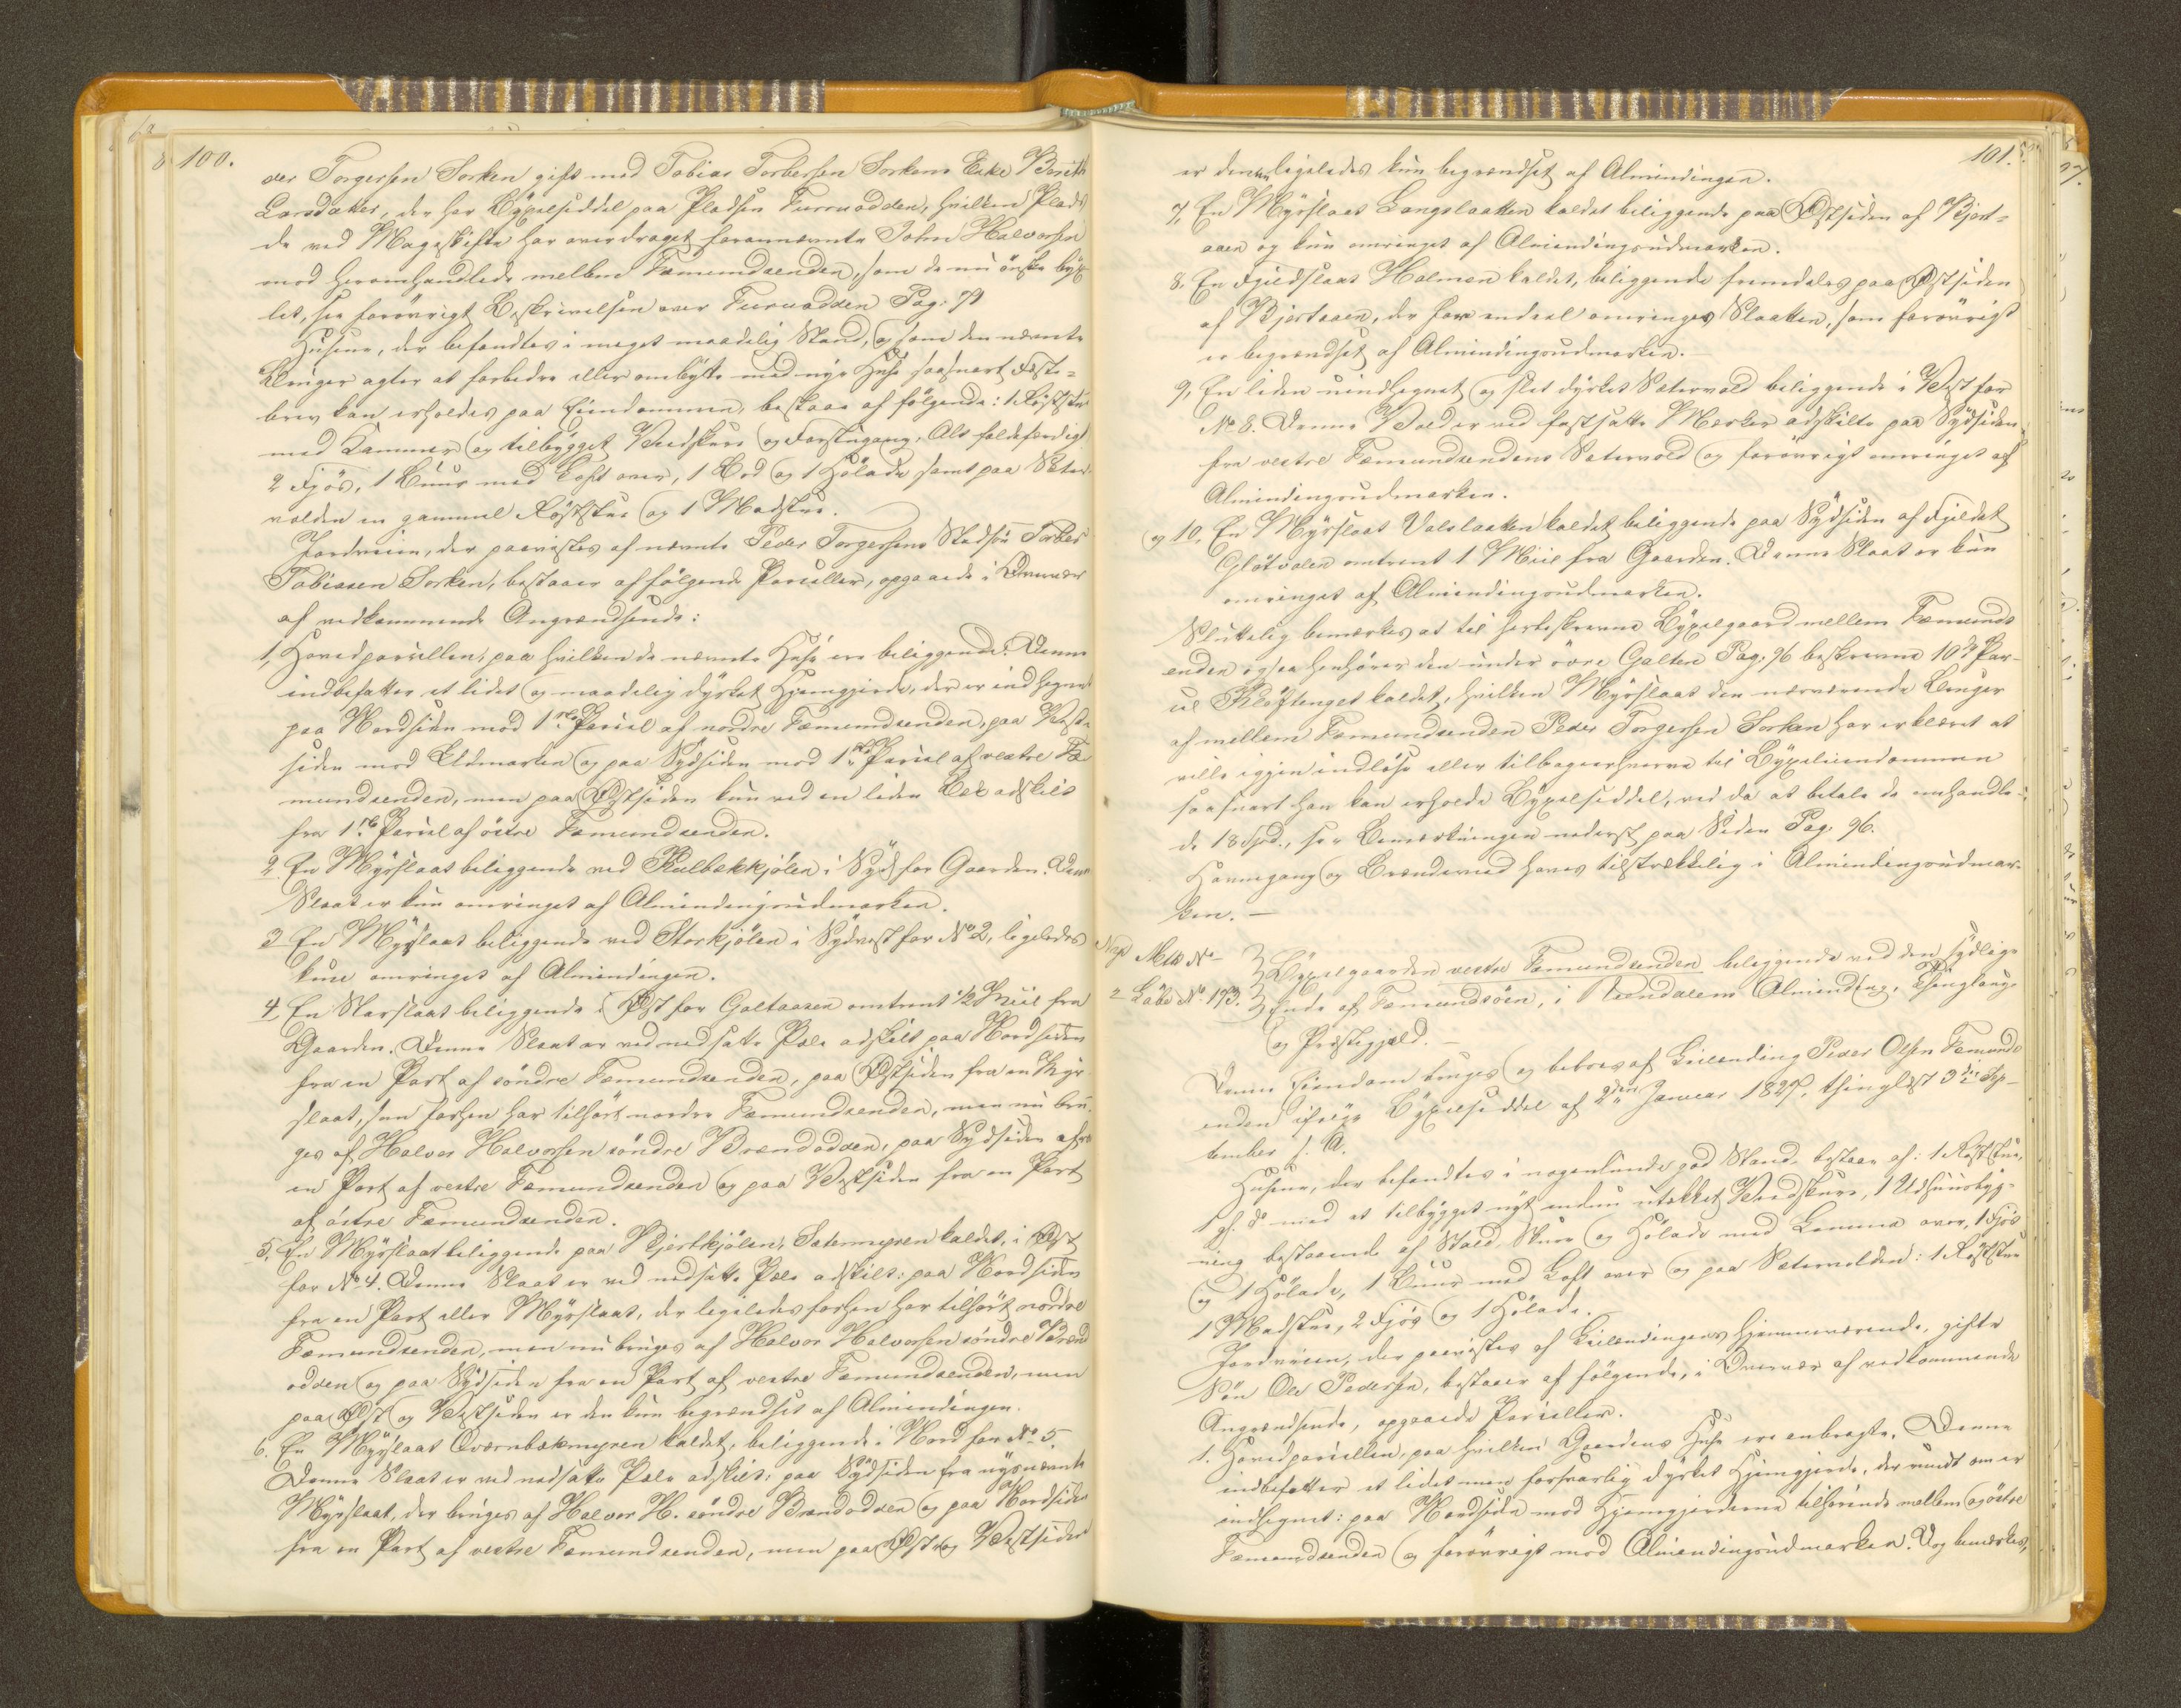 100.
der Torgersen Sorken gift med Tobias Torbersen Sorkens Enke Berith
Larsdatter, der har Bÿgselseddel paa Pladsen Furuodden, hvilken Plads
de ved Mageskifte har overdraget forannævnte John Halvorsen
mod heromhandlede mellem Fæmundsenden, som de nu ønske bÿg-
let, see forøvrigt Beskrivelsen over Furuodden Pag: 79
Husene, der befandtes i meget maadelig Stand, og som den nævnte
Bruger agter at forbedre eller ombÿtte med nÿe Huse saasnart Fæste-
brev kan erholdes paa Eiendommen, bestaar af følgende: 1 Røststue
med Kammer og tilbÿgget Vedskuur og Forstugang, Alt faldefærdigt
2 Fjös, 1 Buur med Loft over, 1 Bod og 1 Hölade samt paa Sæter-
volden en gammel Röststue og 1 Madstue.
Jordveien, der paavistes af nævnte Peder Torgersens Stedsön Torber
Tobiassen Sorken, bestaaer af følgende Parceller, opgaaede i Overvær
af vedkommende Angrændsende:
1, Hovedparcellen, paa hvilken de nævnte Huse ere beliggende. Denne
indbefatter et lidet og maadelig dÿrket Hjemgjerde, der er indhegnet
paa Nordsiden mod 1ste Parcel af nordre Fæmundsenden, paa Vest-
siden mod Udmarken og paa Sÿdsiden mod 1ste Parcel af vestre Fæ-
mundsenden, men paa Østsiden kun ved en liden Bæk adskilt
fra 1ste Parcel af östre Fæmundsenden.
2. En Mÿrslaat beliggende ved Kulbækkjölen i Sÿd for Gaarden. Denne
Slaat er kun omringet af Almindingsudmarken.
3 En Mÿrslaat beliggende ved Storkjölen i Sÿdvest for No 2, ligeledes
kun omringet af Almindingen.
4 En Starslaat beliggende i Øst for Galtaasen omtrent 1/2 Miil fra
Gaarden. Denne Slaat er ved nedsatte Pæle adskilt paa Nordsiden
fra en Part af söndre Fæmundsenden, paa Østsiden fra en Mÿr-
slaat, som forhen har tilhört nordre Fæmundsenden, men nu bru-
ges af Halvor Halvorsen söndre Brændodden, paa Sÿdsiden af
en Part af vestre Fæmundsenden og paa Vestsiden fra en Part
af östre Fæmundsenden.
5, En Mÿrslaat beliggende paa Bjertkjölen, Sætermyren kaldet, i Øst
for No 4. Denne Slaat er ved nedsatte Pæle adskilt: paa Nordsiden
fra en Part eller Mÿrslaat, der ligeledes forhen har tilhört nordre
Fæmundsenden, men nu bruges af Halvor Halvorsen söndre Brænd
odden og paa Sÿdsiden fra en Part af vestre Fæmundsenden, men
paa Øst og Vestsiden er den kun begrændset af Almindingen.
6. En Mÿrslaat Qværnbækmyren kaldet, beliggende i Nord for No 5.
Denne Slaat er ved nedsatte Pæle adskilt: paa Sÿdsiden fra nÿsnævnte
Mÿrslaat, der bruges af Halvor H. söndre Brændodden og paa Nordsiden
fra en Part af vestre Fæmundsenden, men paa Øst og Vestsiden
101.
er den ligeledes kun begrændset af Almindingen.
7, En Mÿrslaat Langslaatten kaldet beliggende paa Østsiden af Bjert-
aaen og kun omringet af Almindingsudmarken.
8. En Fjeldslaat Holmen kaldet, beliggende fremdeles paa Østsiden
af Bjertaaen, der for endeel omringes Slaatten, som forøvrigt
er begrændset af Almindingsudmarken.
9, En liden uindhegnet og slet dÿrket Sætervold beliggende i Vest for
No 8. Denne Vold er ved fastsatte Mærker adskilte paa Sÿdsiden
fra vestre Fæmundsendens Sætervold og forøvrigt omringet af
Almindingsudmarken.
og 10. En Mÿrslaat Valslaatten kaldet beliggende paa Sÿdsiden af Fjeldet
Glötvolen omtrent 1 Miil fra Gaarden. Denne Slaat er kun
omringet af Almindingsudmarken.
Sluttelig bemærkes at til herbeskrevne Bÿgselgaard mellem Fæmunds
enden ogsaa henhörer den under övre Galten Pag: 96 beskrevne 10de Par-
cel Klöftenget kaldet, hvilken Mÿrslaat den nærværende Bruger
af mellem Fæmundsenden Peder Torgersen Sorken har erklæret at
ville igjen indlöse eller tilbageerhverve til Bÿgseleiendommen
saasnart han kan erholde Bÿgselseddel, ved da at betale de omhandle-
de 18 Spd., see Bemærkningen nederst paa Siden Pag. 96.
Havnegang og Brændeved haves tilstrækkelig i Almindingsudmar-
ken. —
Mtr No —
2 Løbe No 173.
Bÿgselgaarden vestre Fæmundsenden beliggende ved den sÿdlige
Ende af Fæmundsöen, i Rendalens Alminding, Thinglaug
og Præstegjeld. —
Denne Eiendom bruges og beboes af Leilending Peder Olsen Fæmunds
enden ifølge Bÿgselseddel af 2den Januar 1827, thinglæst 3die Sep-
tember s. A.
Husene, der befandtes i nogenlunde god Stand, bestaar af: 1 Röststue,
1 gl. do med et tilbÿgget nÿt endnu utækket Vedskuur, 1 Udhuusbÿg-
ning bestaaende af Stald, Skuur og Hölade med Lemmer over, 1 Fjös
og 1 Hölade, 1 Buur med Loft over og paa Sætervolden: 1 Röststue
1 Madstue, 2 Fjös og 1 Hölade.
Jordveien, der paavistes af Leilendingens hjemmeværende, gifte
Sön Ole Pedersen, bestaaer af følgende, i Overvær af vedkommende
Angrændsende, opgaaede Parceller.
1. Hovedparcellen, paa hvilken Gaardens Huse ere anbragte. Denne
indbefatter et lidet men forsvarlig dÿrket Hjemgjerde, der rundt om er
indhegnet: paa Nordsiden mod Hjemgjerderne tilhörende mellem og östre
Fæmundsenden og forøvrigt mod Almindingsudmarken. Dog bemærkes,